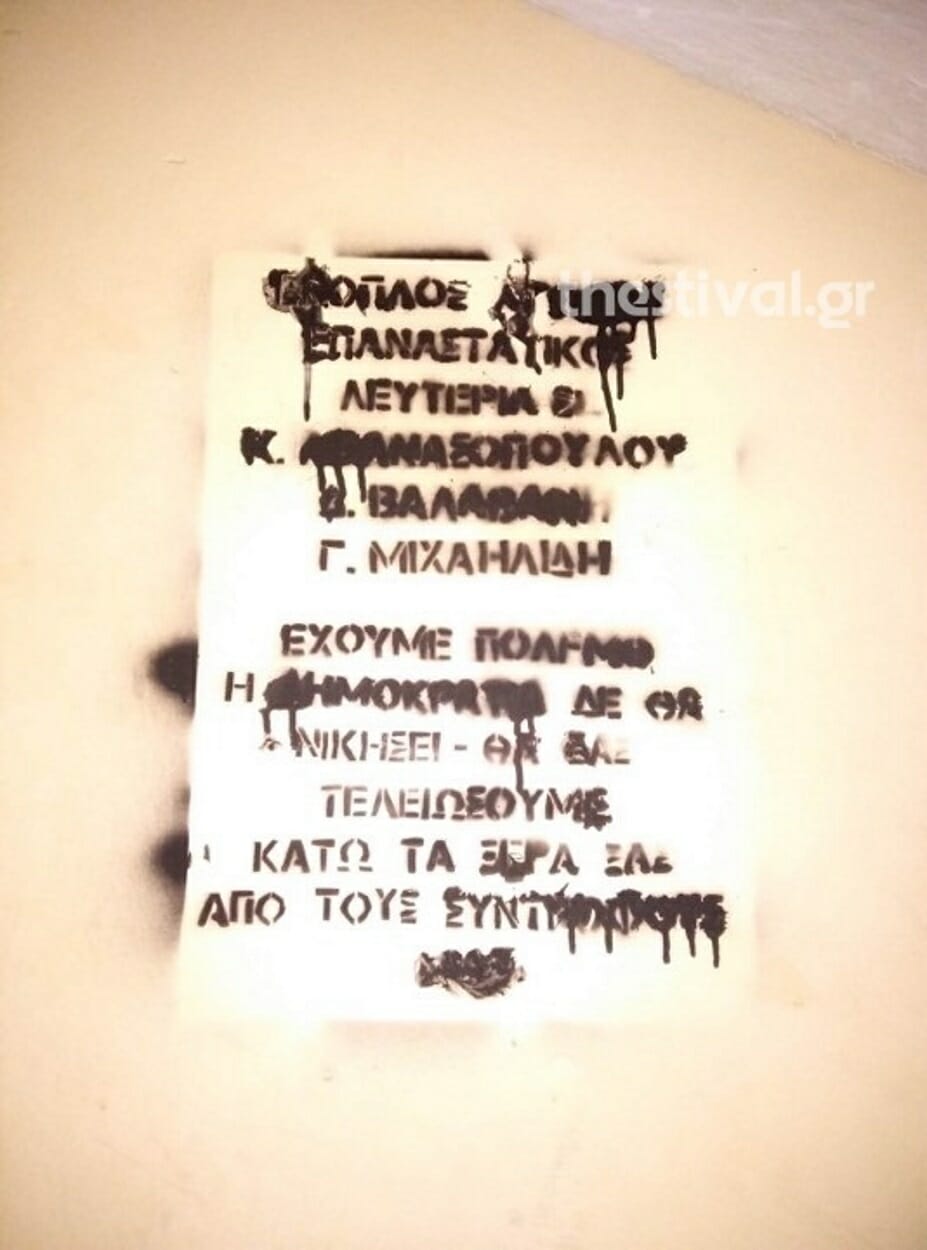 ΕΝΟΠΛΟΣ
thestival.gr
ΕΠΑΝΑΣΤΑΤΙΚΟΣ
ΛΕΥΤΕΡΙΑ
Κ. ΑΘΑΝΑΣΟΠΟΥΛΟΥ
ΒΑΛΑΒΑΝΗ
Γ. ΜΙΧΑΗΛΙΔΗ
ΕΧΟΥΜΕ ΠΟΛΕΜΟ
Η ΔΗΜΟΚΡΑΤΙΑ ΔΕ ΘΑ
ΝΙΚΗΣΕΙ - ΘΑ ΣΑΣ
ΤΕΛΕΙΩΣΟΥΜΕ
ΚΑΤΩ ΤΑ ΞΕΡΑ ΣΑΣ
ΑΠΟ ΤΟΥΣ ΣΥΝΤΡΟΦΟΥΣ